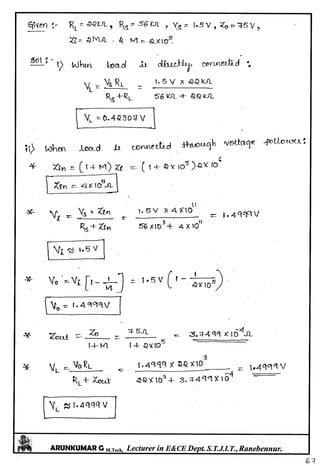 Given :- RL = 22kΩ, RS = 56 kΩ, VS = 1.5V, Zo = 75V,
Zi = 2MΩ. & M = 2x10⁵.
Sol :- i) When load is directly connected :
VL = VS RL / RS + RL = 1.5 V x 22kΩ / 56kΩ + 22kΩ
VL = 0.42307 V
ii) When load is connected through voltage follower :
* Zin = (1+M) Zi = (1 + 2x10⁵) 2x10⁶
Zin = 4x10¹¹Ω
* Vi = VS x Zin / RS + Zin = 1.5V x 4x10¹¹ / 56x10³ + 4x10¹¹ = 1.4999V
Vi ≈ 1.5 V
* Vo = Vi [1 - 1/M] = 1.5V (1 - 1/2x10⁵)
Vo = 1.4999V
* Zout = Zo / 1+M = 75Ω / 1+2x10⁵ = 3.7499 x10⁻⁴Ω
* VL = Vo RL / RL + Zout = 1.4999 x 22x10³ / 22x10³ + 3.7499x10⁻⁴ = 1.4999V
VL ≈ 1.4999 V
ARUNKUMAR G M.Tech, Lecturer in E&CE Dept. S.T.J.I.T., Ranebennur.
67